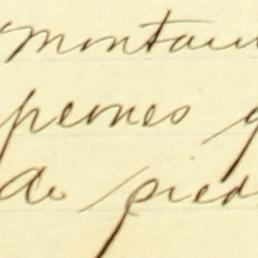 montau
peones g
de pied